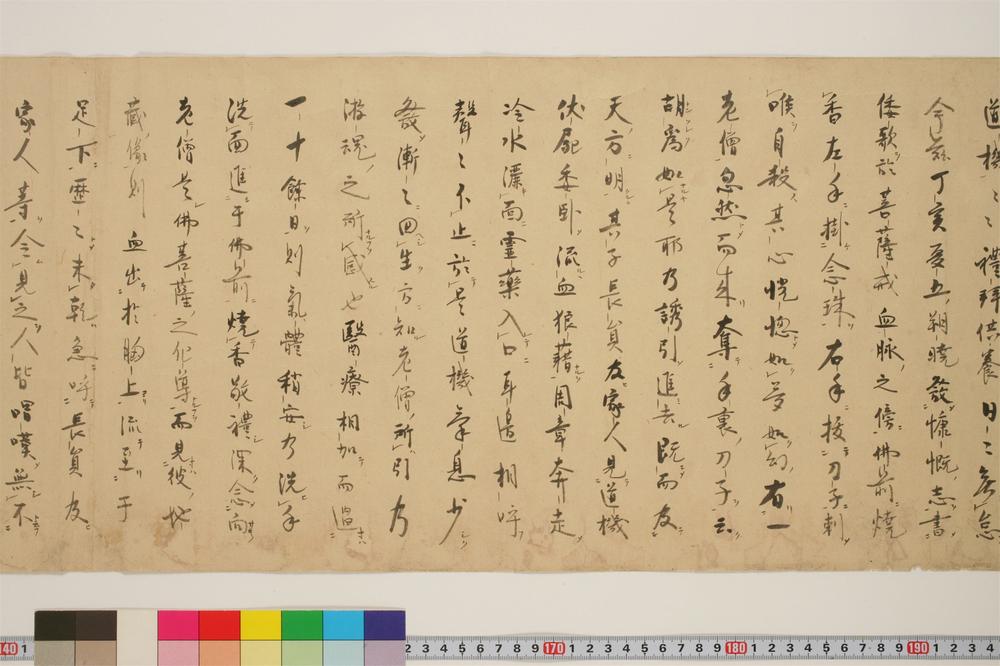 道機々々禮拝供養日々無怠
今茲丁亥夏五朔暁發慷慨志書
倭歌於菩薩戒血脉之傍佛前焼
香左手掛念珠右手按刀子刺
喉自殺其心恍惚如夢如幻有一
老僧忽然而来奪手裏刀子云
胡為如是耶乃誘引進去既而及
天方明其子長員及家人見道機
伏屍委卧流血狼藉周章奔走
冷水灑面靈藥入口耳邊相呼
聲々不止於是道機氣息少
發漸々回生方知老僧所引乃
遊魂之所感也醫療相加而過
一十餘日則氣體稍安乃洗手
洗面進于佛前燒香敬禮深念向
老僧是佛菩薩之化導而見彼地
藏像則血出於胸上流至于
足下歷々未乾急呼長員及
家人等令見之人皆喟嘆無不
140 1 2 3 4 5 6 7 8 9 170 1 2 3 4 5 6 7 8 9 180 1 2 3 4 5 6 7 8 9 190 1 2 3 4